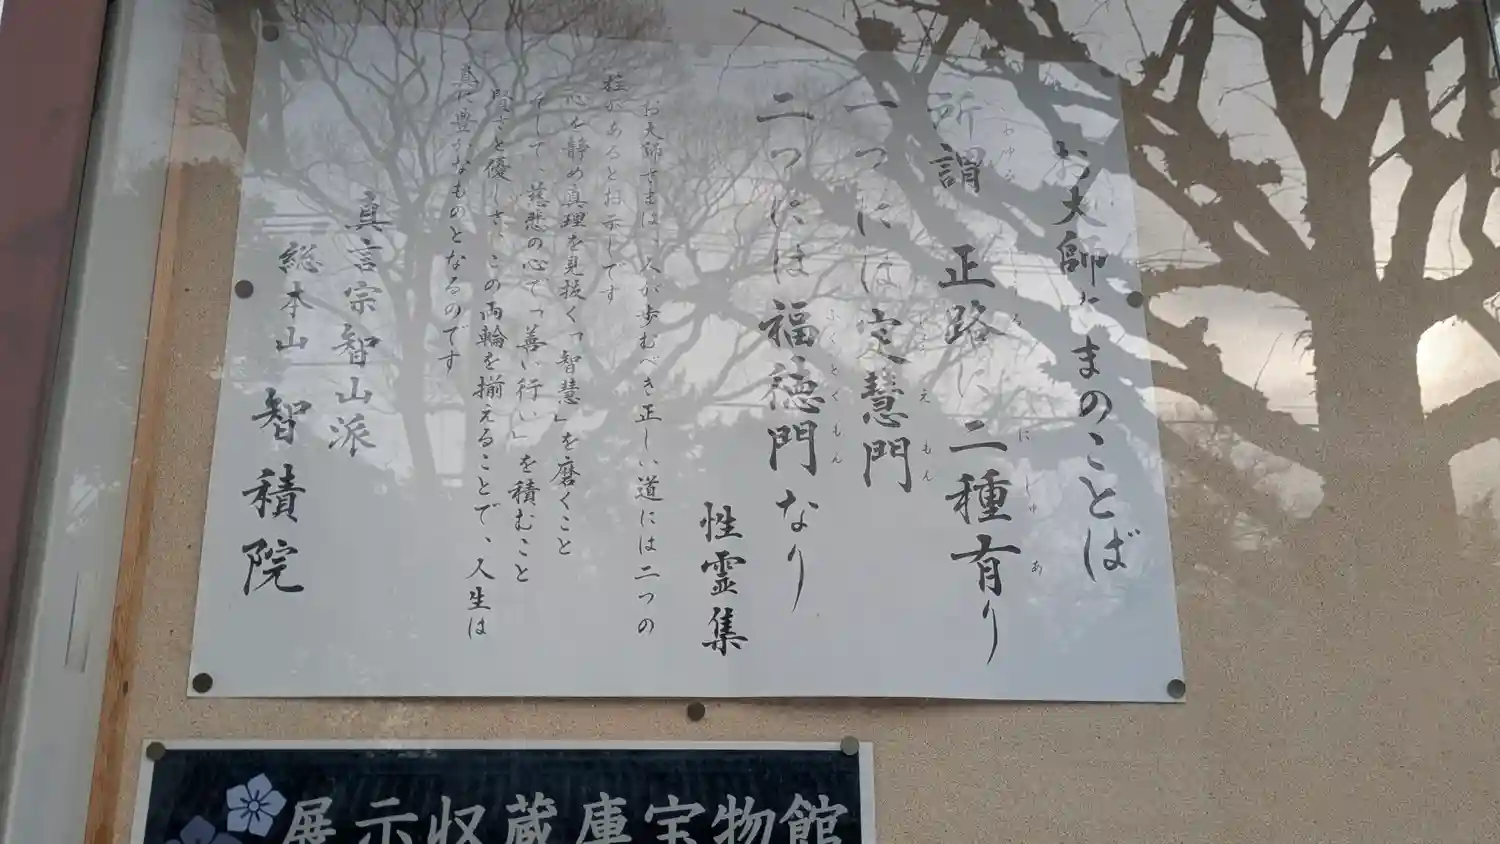 お大師さまのことば
所謂 正路に二種有り
いわゆる しょうろ にしゅ あ
一つには定慧門
じょうえもん
二つには福徳門なり
ふくとくもん
性霊集
お大師さまは、人が歩むべき正しい道には二つの
柱があるとお示しです
心を静め真理を見抜く「智慧」を磨くこと
そして、慈悲の心で「善い行い」を積むこと
賢さと優しさ、この両輪を揃えることで、人生は
真に豊かなものとなるのです
真言宗智山派
総本山 智積院
展示収蔵庫宝物館